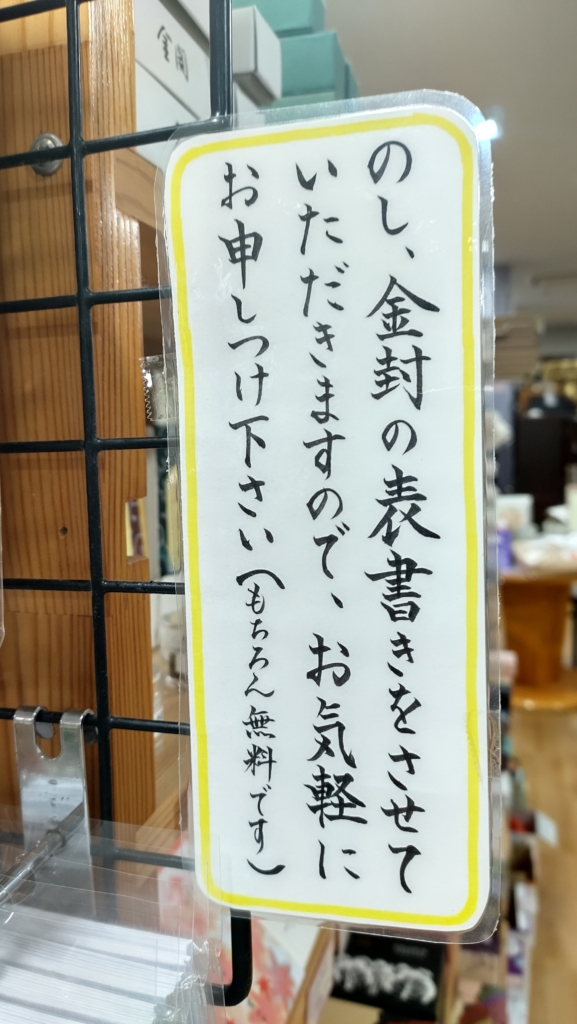 のし、金封の表書きをさせて
いただきますので、お気軽に
お申しつけ下さい（もちろん無料です）